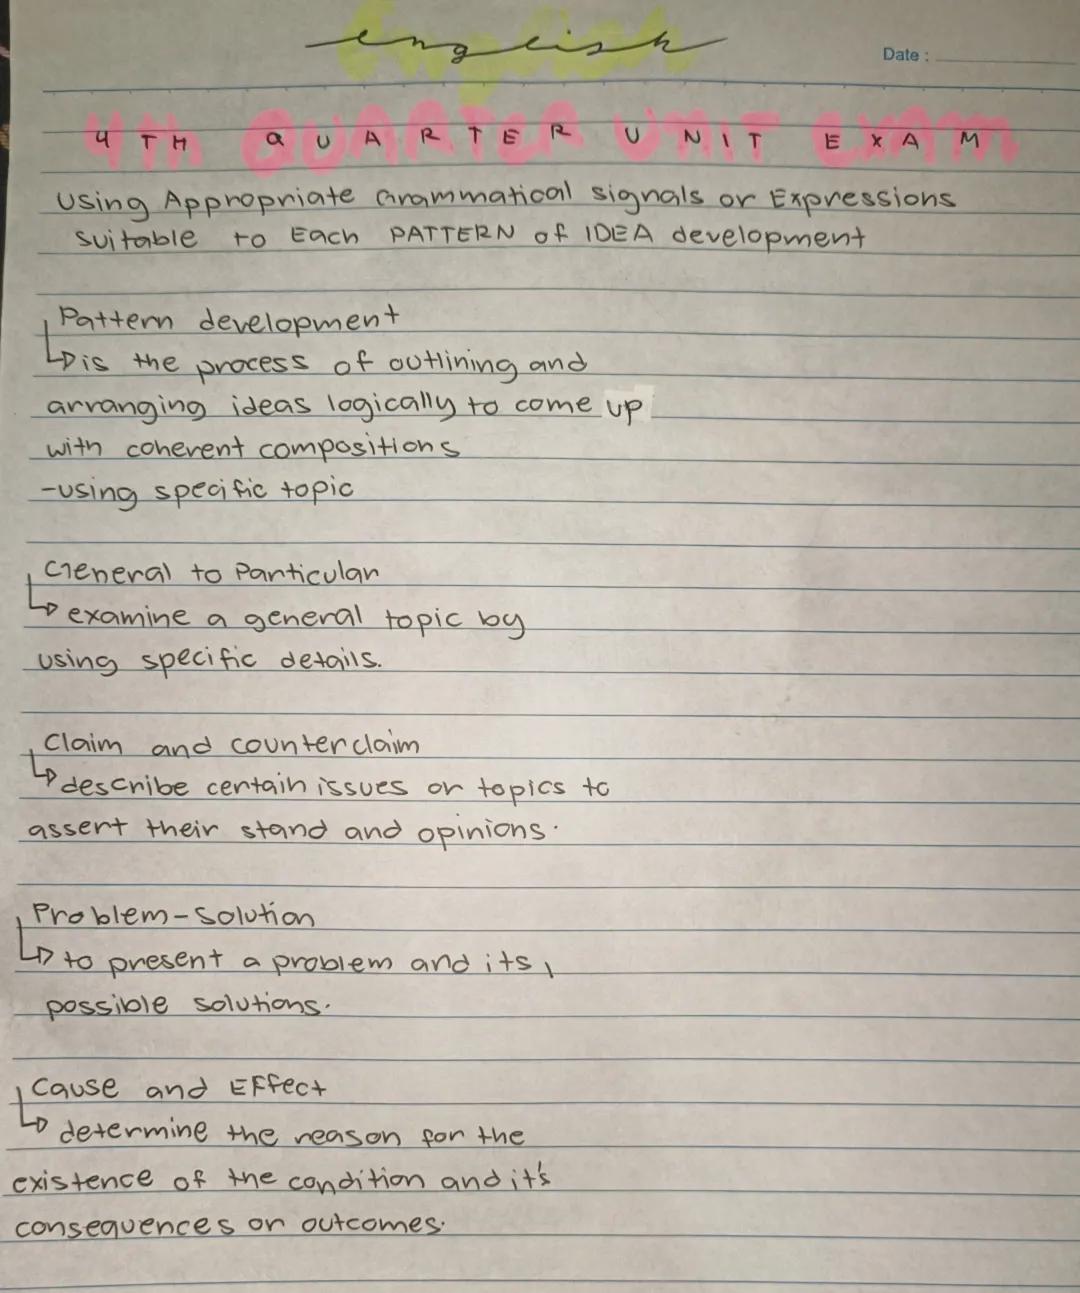 english
Date :
4TH QUARTER UNIT EXAM
Using Appropriate Grammatical signals or Expressions
suitable to Each PATTERN of IDEA development
Pattern development
↳ is the process of outlining and
arranging ideas logically to come up
with coherent compositions
-using specific topic
General to Particular
↳ examine a general topic by
using specific details.
Claim and counterclaim
↳ describe certain issues or topics to
assert their stand and opinions.
Problem-solution
↳ to present a problem and its
possible solutions.
Cause and Effect
↳ determine the reason for the
existence of the condition and it's
consequences or outcomes.